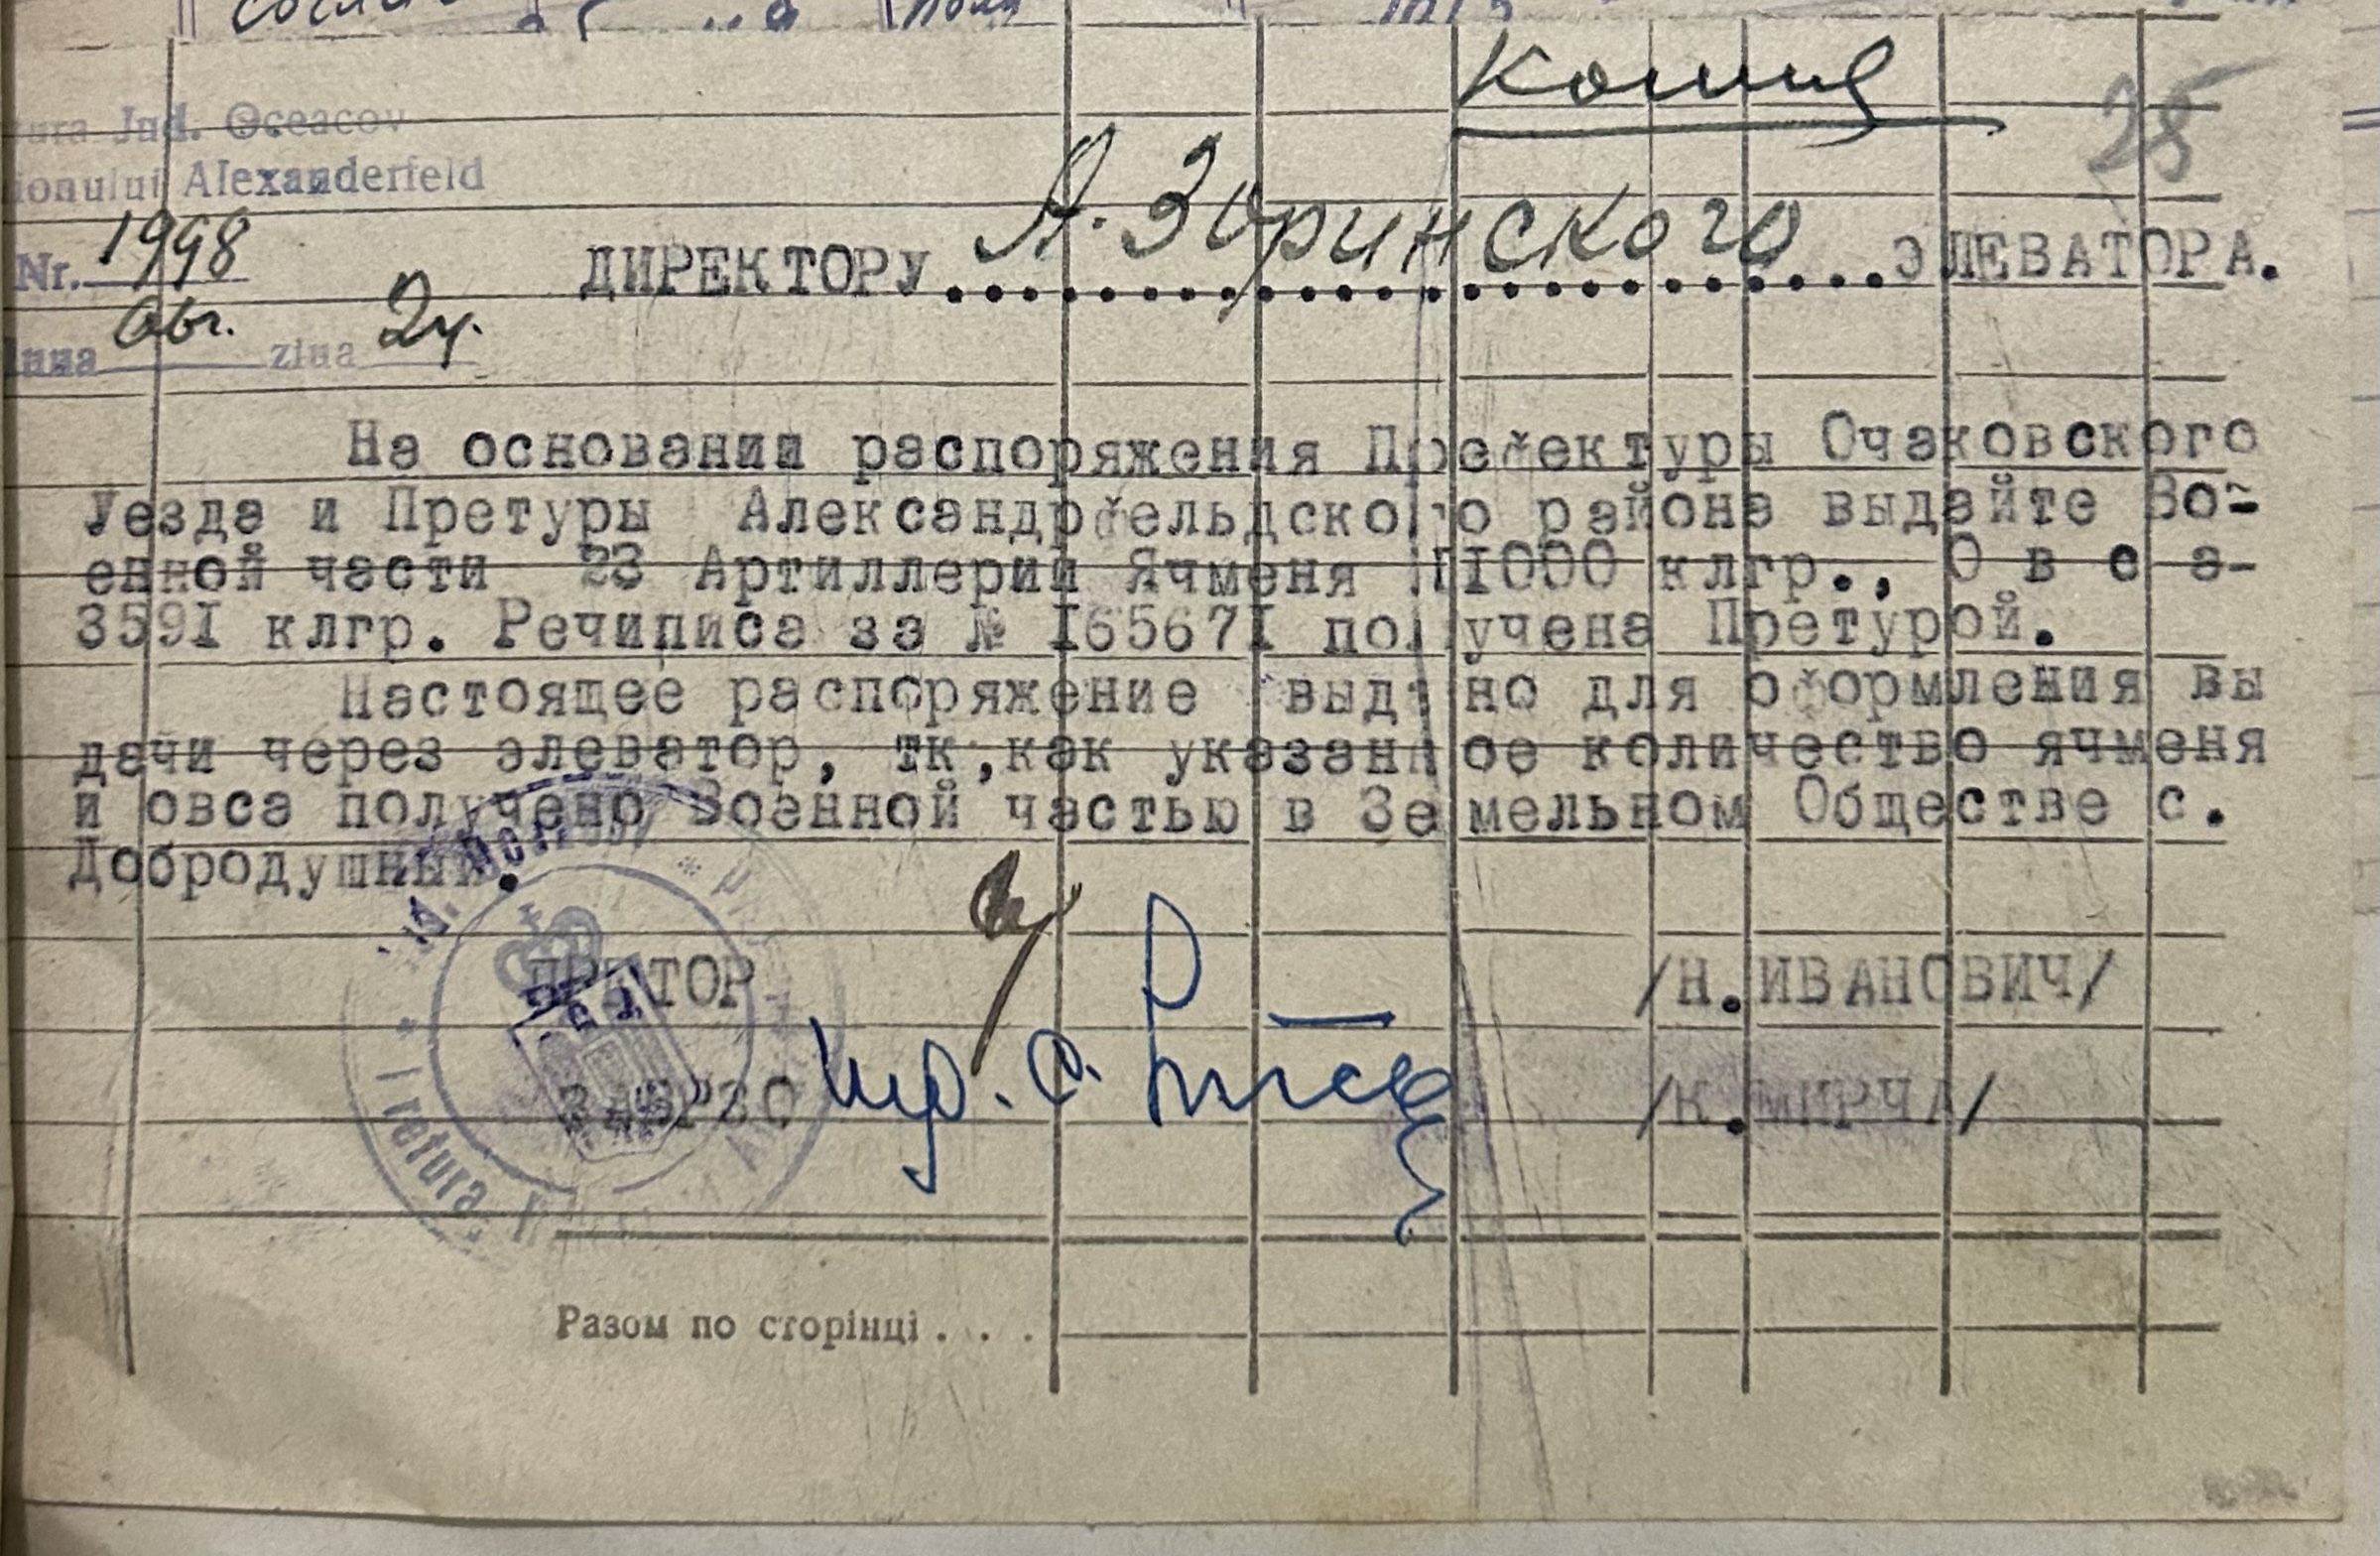 Копия
28
Jud. Oceacov
Alexanderfeld
Nr. 1998
Авг. ziua 24.
ДИРЕКТОРУ А. Зоринского ЭЛЕВАТОРА.
На основании распоряжения Префектуры Очаковского
Уезда и Претуры Александрфельдского района выдайте Во-
енной части 23 Артиллерии Ячменя 11000 клгр., О в с а-
3591 клгр. Речиписа за № 165671 получена Претурой.
Настоящее распоряжение выдано для оформления вы
дачи через элеватор, тк,как указанное количество ячменя
и овса получено Военной частью в Земельном Обществе с.
Добродушный.
ПРЕТОР /Н.ИВАНОВИЧ/
ЗАВРЗО /К.МИРЧА/
Разом по сторінці . . .